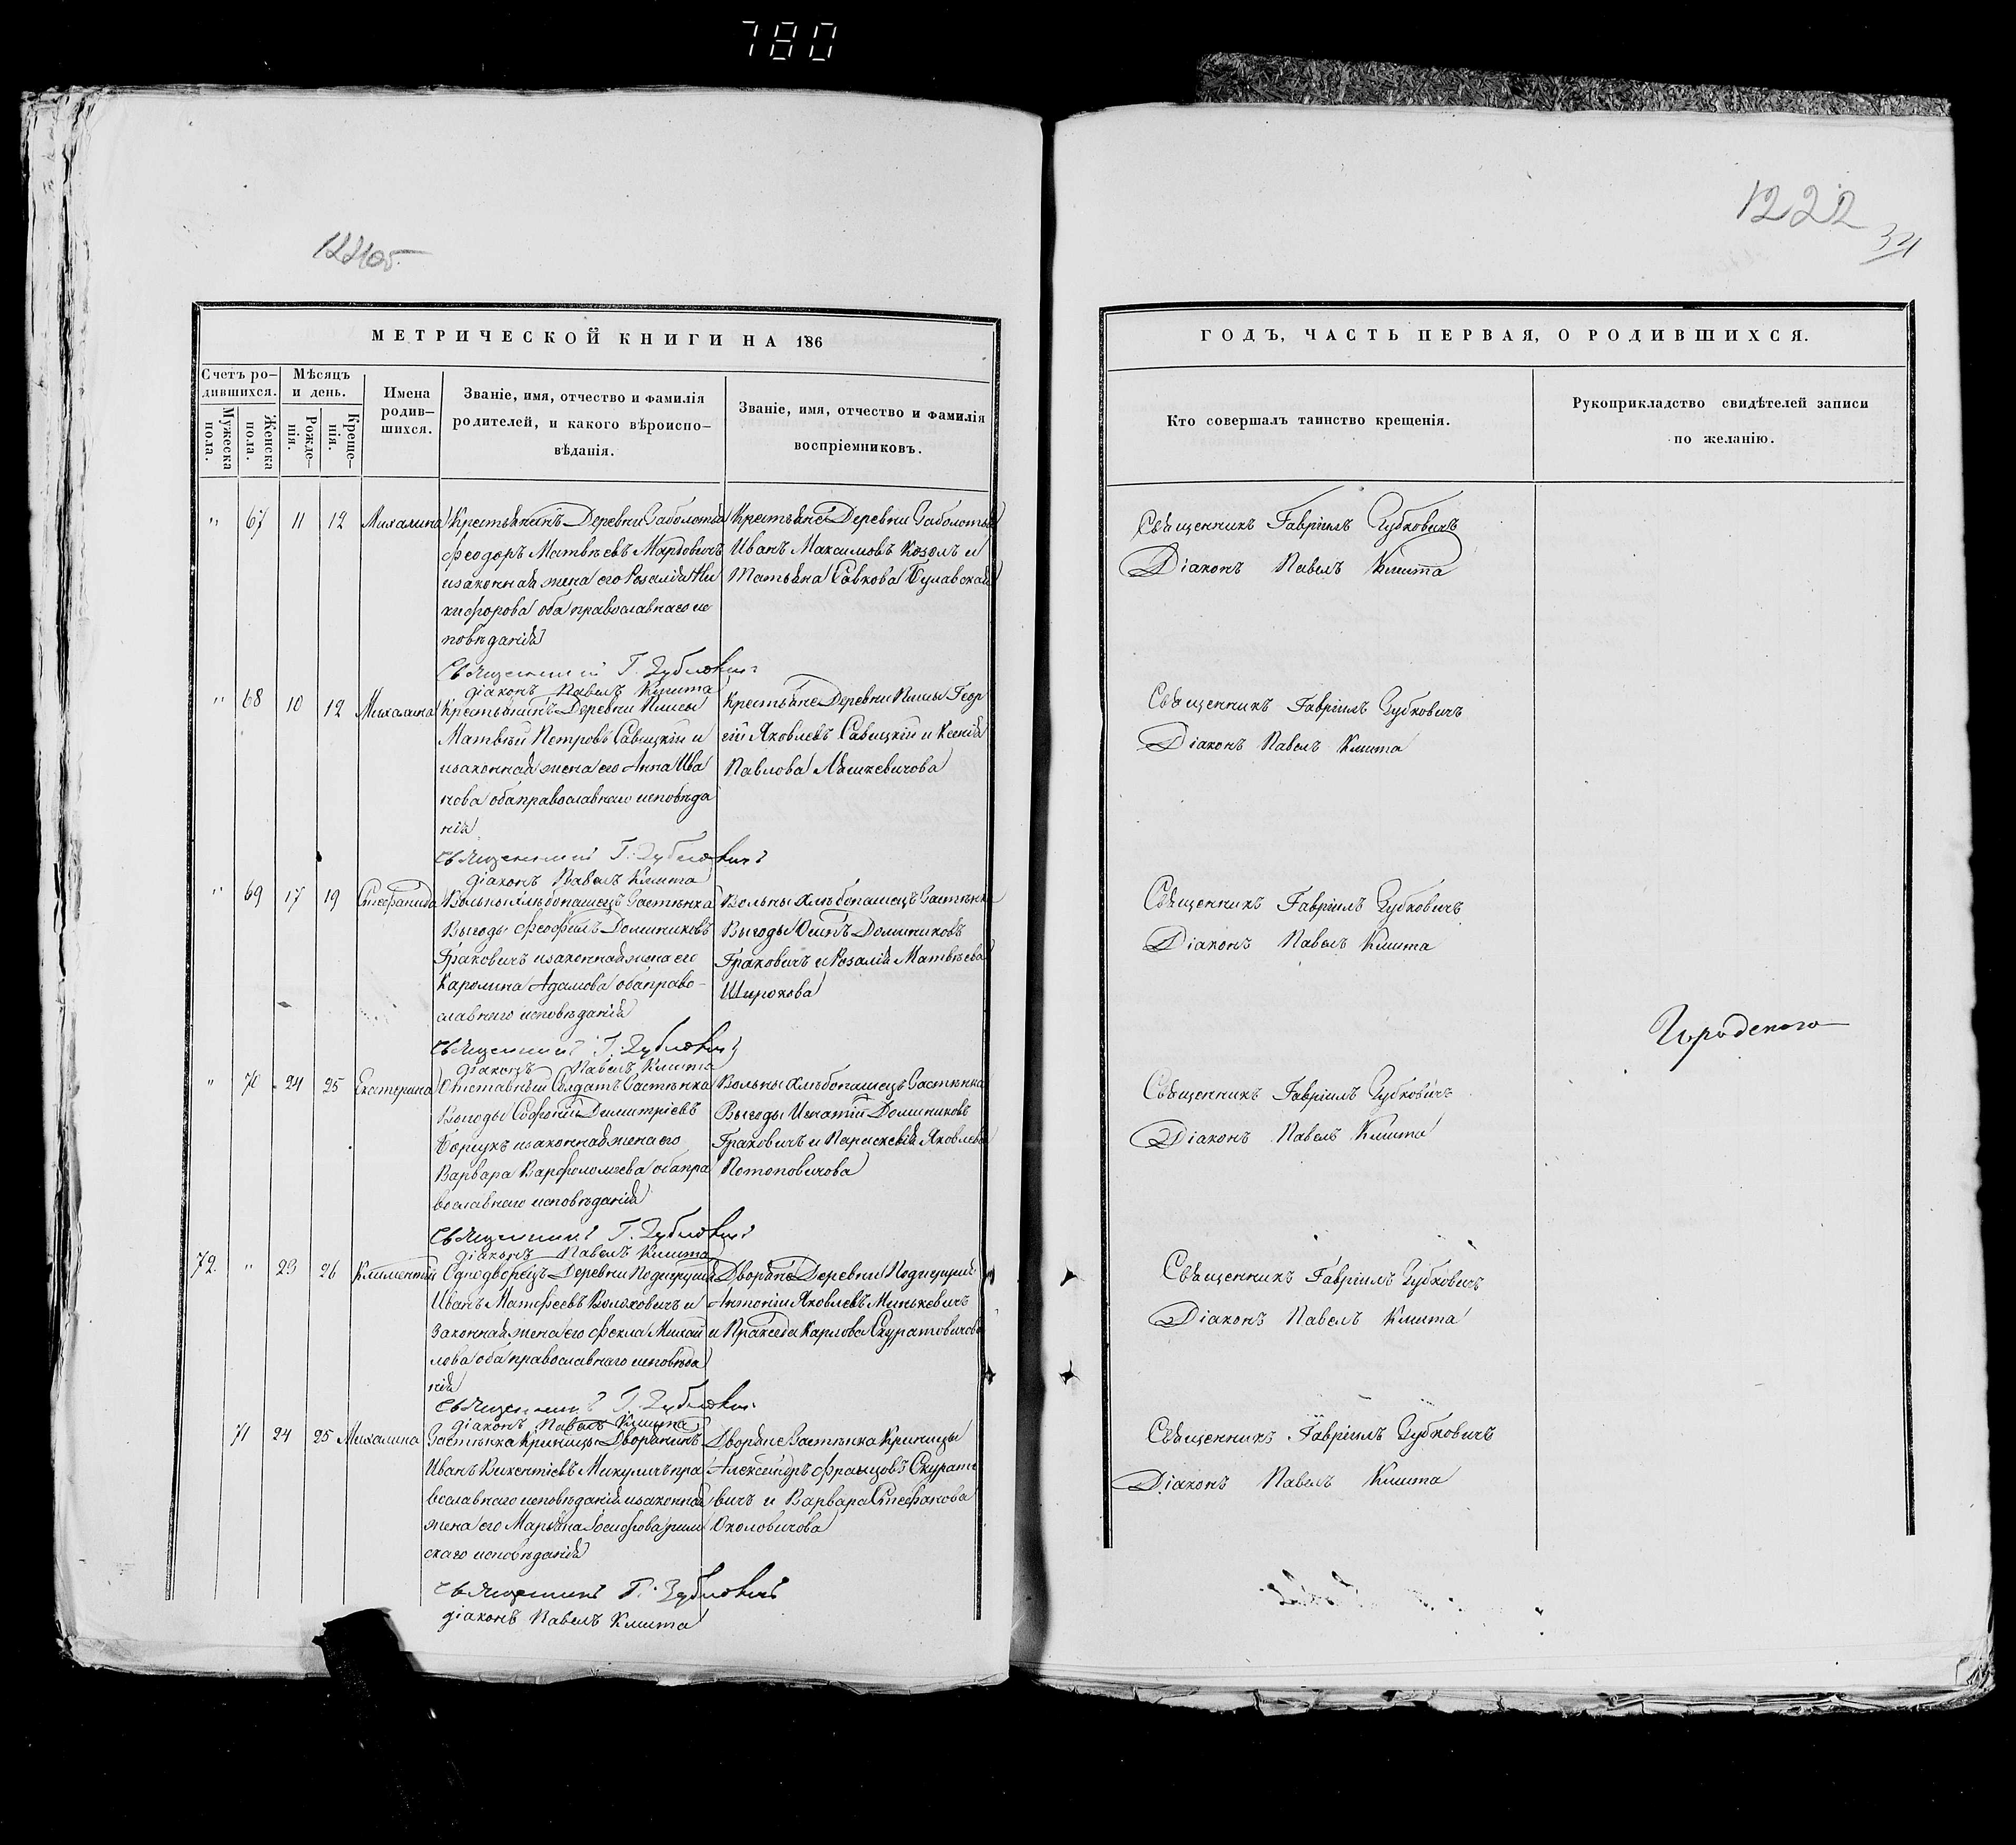 780
1222
31
МЕТРИЧЕСКОЙ КНИГИ НА 186
Счетъ родившихся.
Мужеска пола.
Женска пола.
Мѣсяцъ и день.
Рожденія.
Крещенія.
Имена родившихся.
Званіе, имя, отчество и фамилія
родителей, и какого вѣроиспо-
вѣданія.
Званіе, имя, отчество и фамилія
воспріемниковъ.
" 67 11 12 Михалина
Крестьянинъ Деревни Заболотья
Феодоръ Матвѣевъ
и законная жена его Розалія Ни
кифорова оба православнаго ис
повѣданія
Крестьяне Деревни Заболотья
Иванъ Максимовъ Козолъ и
Татьяна Савкова Булавская
Священникъ Г. Зубковичъ
діаконъ Павелъ Кмита
" 68 10 12 Михалина
Крестьянинъ Деревни
Матвѣй Петровъ Савицкій и
и законная жена его Анна Ива
нова оба православнаго исповѣда
нія
Крестьяне Деревни Геор
гій Яковлевъ Савицкій и Ксенія
Павлова
Священникъ Г. Зубковичъ
діаконъ Павелъ Кмита
" 69 17 19 Стефанида
Вольный хлѣбопашецъ Застѣнка
Выгоды Феофилъ Доминиковъ
Граковичъ и законная жена его
Каролина Адамова оба право-
славнаго исповѣданія
Вольны хлѣбопашецъ Застѣнка
Выгоды Осипъ Доминиковъ
Граковичъ и Розалія Матвѣева
Широкова
Священникъ Г. Зубковичъ
діаконъ Павелъ Кмита
" 70 24 25 Екатерина
Отставный Солдатъ Застѣнка
Выгоды Софроній Димитріевъ
и законная жена его
Варвара Варфоломѣева оба пра
вославнаго исповѣданія
Вольны хлѣбопашецъ Застѣнка
Выгоды Игнатій Доминиковъ
Граковичъ и Параскевія Яковлева
Потоповичова
Священникъ Г. Зубковичъ
діаконъ Павелъ Кмита
72 " 23 26 Климентій
Однодворецъ Деревни
Иванъ Матфеевъ Волоховичъ и
Законная жена его Фекла Михай
лова оба православнаго исповѣда
нія
Дворяне Деревни
Антоній Яковлевъ Минькевичъ
и Праксѣда Карлова Скуратовичова
Священникъ Г. Зубковичъ
діаконъ Павелъ Кмита
71 24 25 Михалина
Застѣнка Криницы Дворянинъ
Иванъ Викентіевъ Микуличъ пра
вославнаго исповѣданія и законная
жена его Марьяна Іосифова рим
скаго исповѣданія
Дворяне Застѣнка Криницы
Александръ Францовъ Скурато
вичъ и Варвара Стефанова
Околовичова
Священникъ Г. Зубковичъ
діаконъ Павелъ Кмита
ГОДЪ, ЧАСТЬ ПЕРВАЯ, О РОДИВШИХСЯ.
Кто совершалъ таинство крещенія.
Рукоприкладство свидѣтелей записи
по желанію.
Священникъ Гавріилъ Зубковичъ
Діаконъ Павелъ Кмита
Священникъ Гавріилъ Зубковичъ
Діаконъ Павелъ Кмита
Священникъ Гавріилъ Зубковичъ
Діаконъ Павелъ Кмита
Городенаго
Священникъ Гавріилъ Зубковичъ
Діаконъ Павелъ Кмита
Священникъ Гавріилъ Зубковичъ
Діаконъ Павелъ Кмита
Священникъ Гавріилъ Зубковичъ
Діаконъ Павелъ Кмита